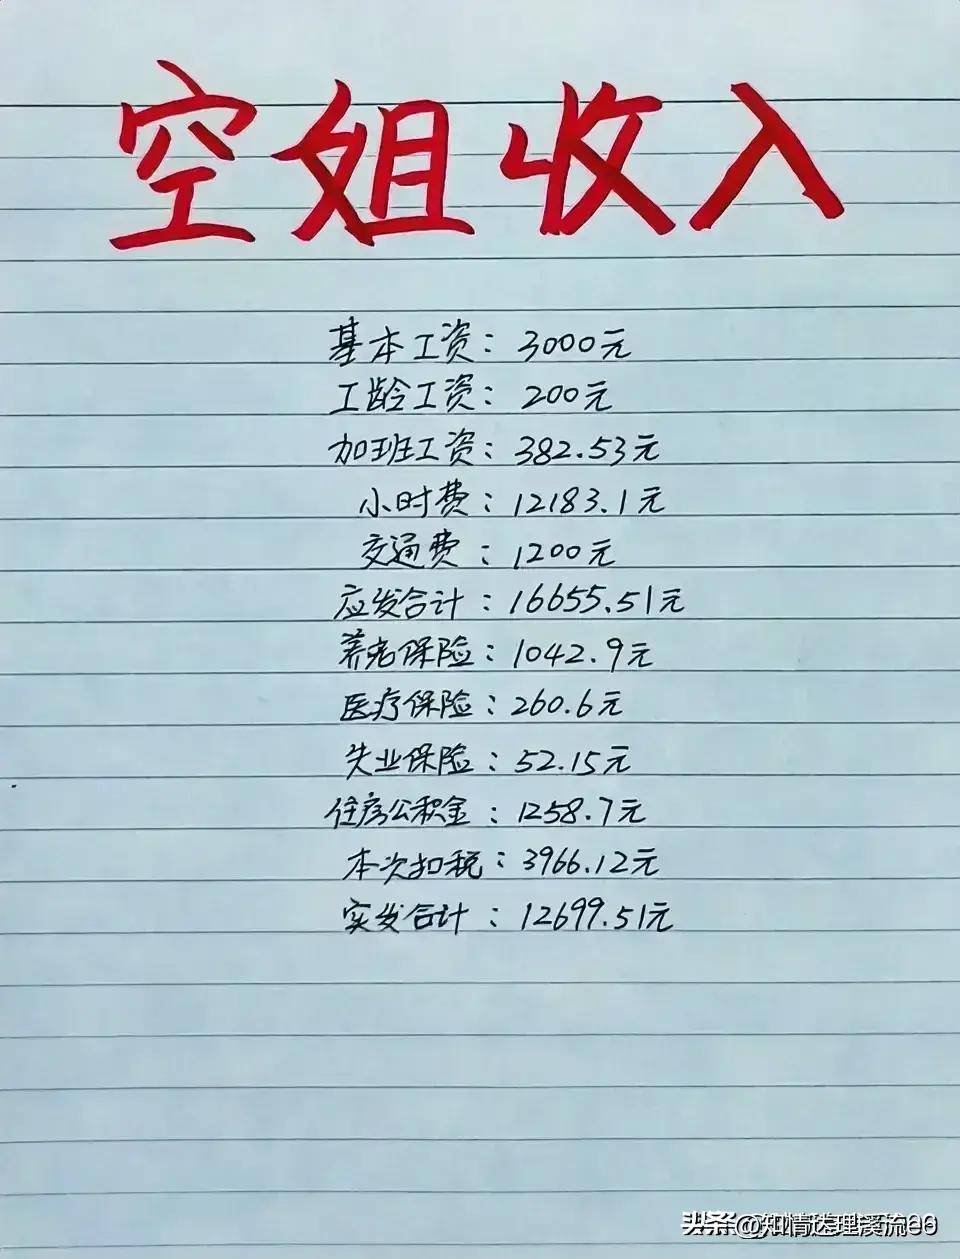 空姐收入
基本工资：3000元
工龄工资：200元
加班工资：382.53元
小时费：12183.1元
交通费：1200元
应发合计：16655.51元
养老保险：1042.9元
医疗保险：260.6元
失业保险：52.15元
住房公积金：1258.7元
本次扣税：3966.12元
实发合计：12699.51元
头条 @知情达理溪流e0